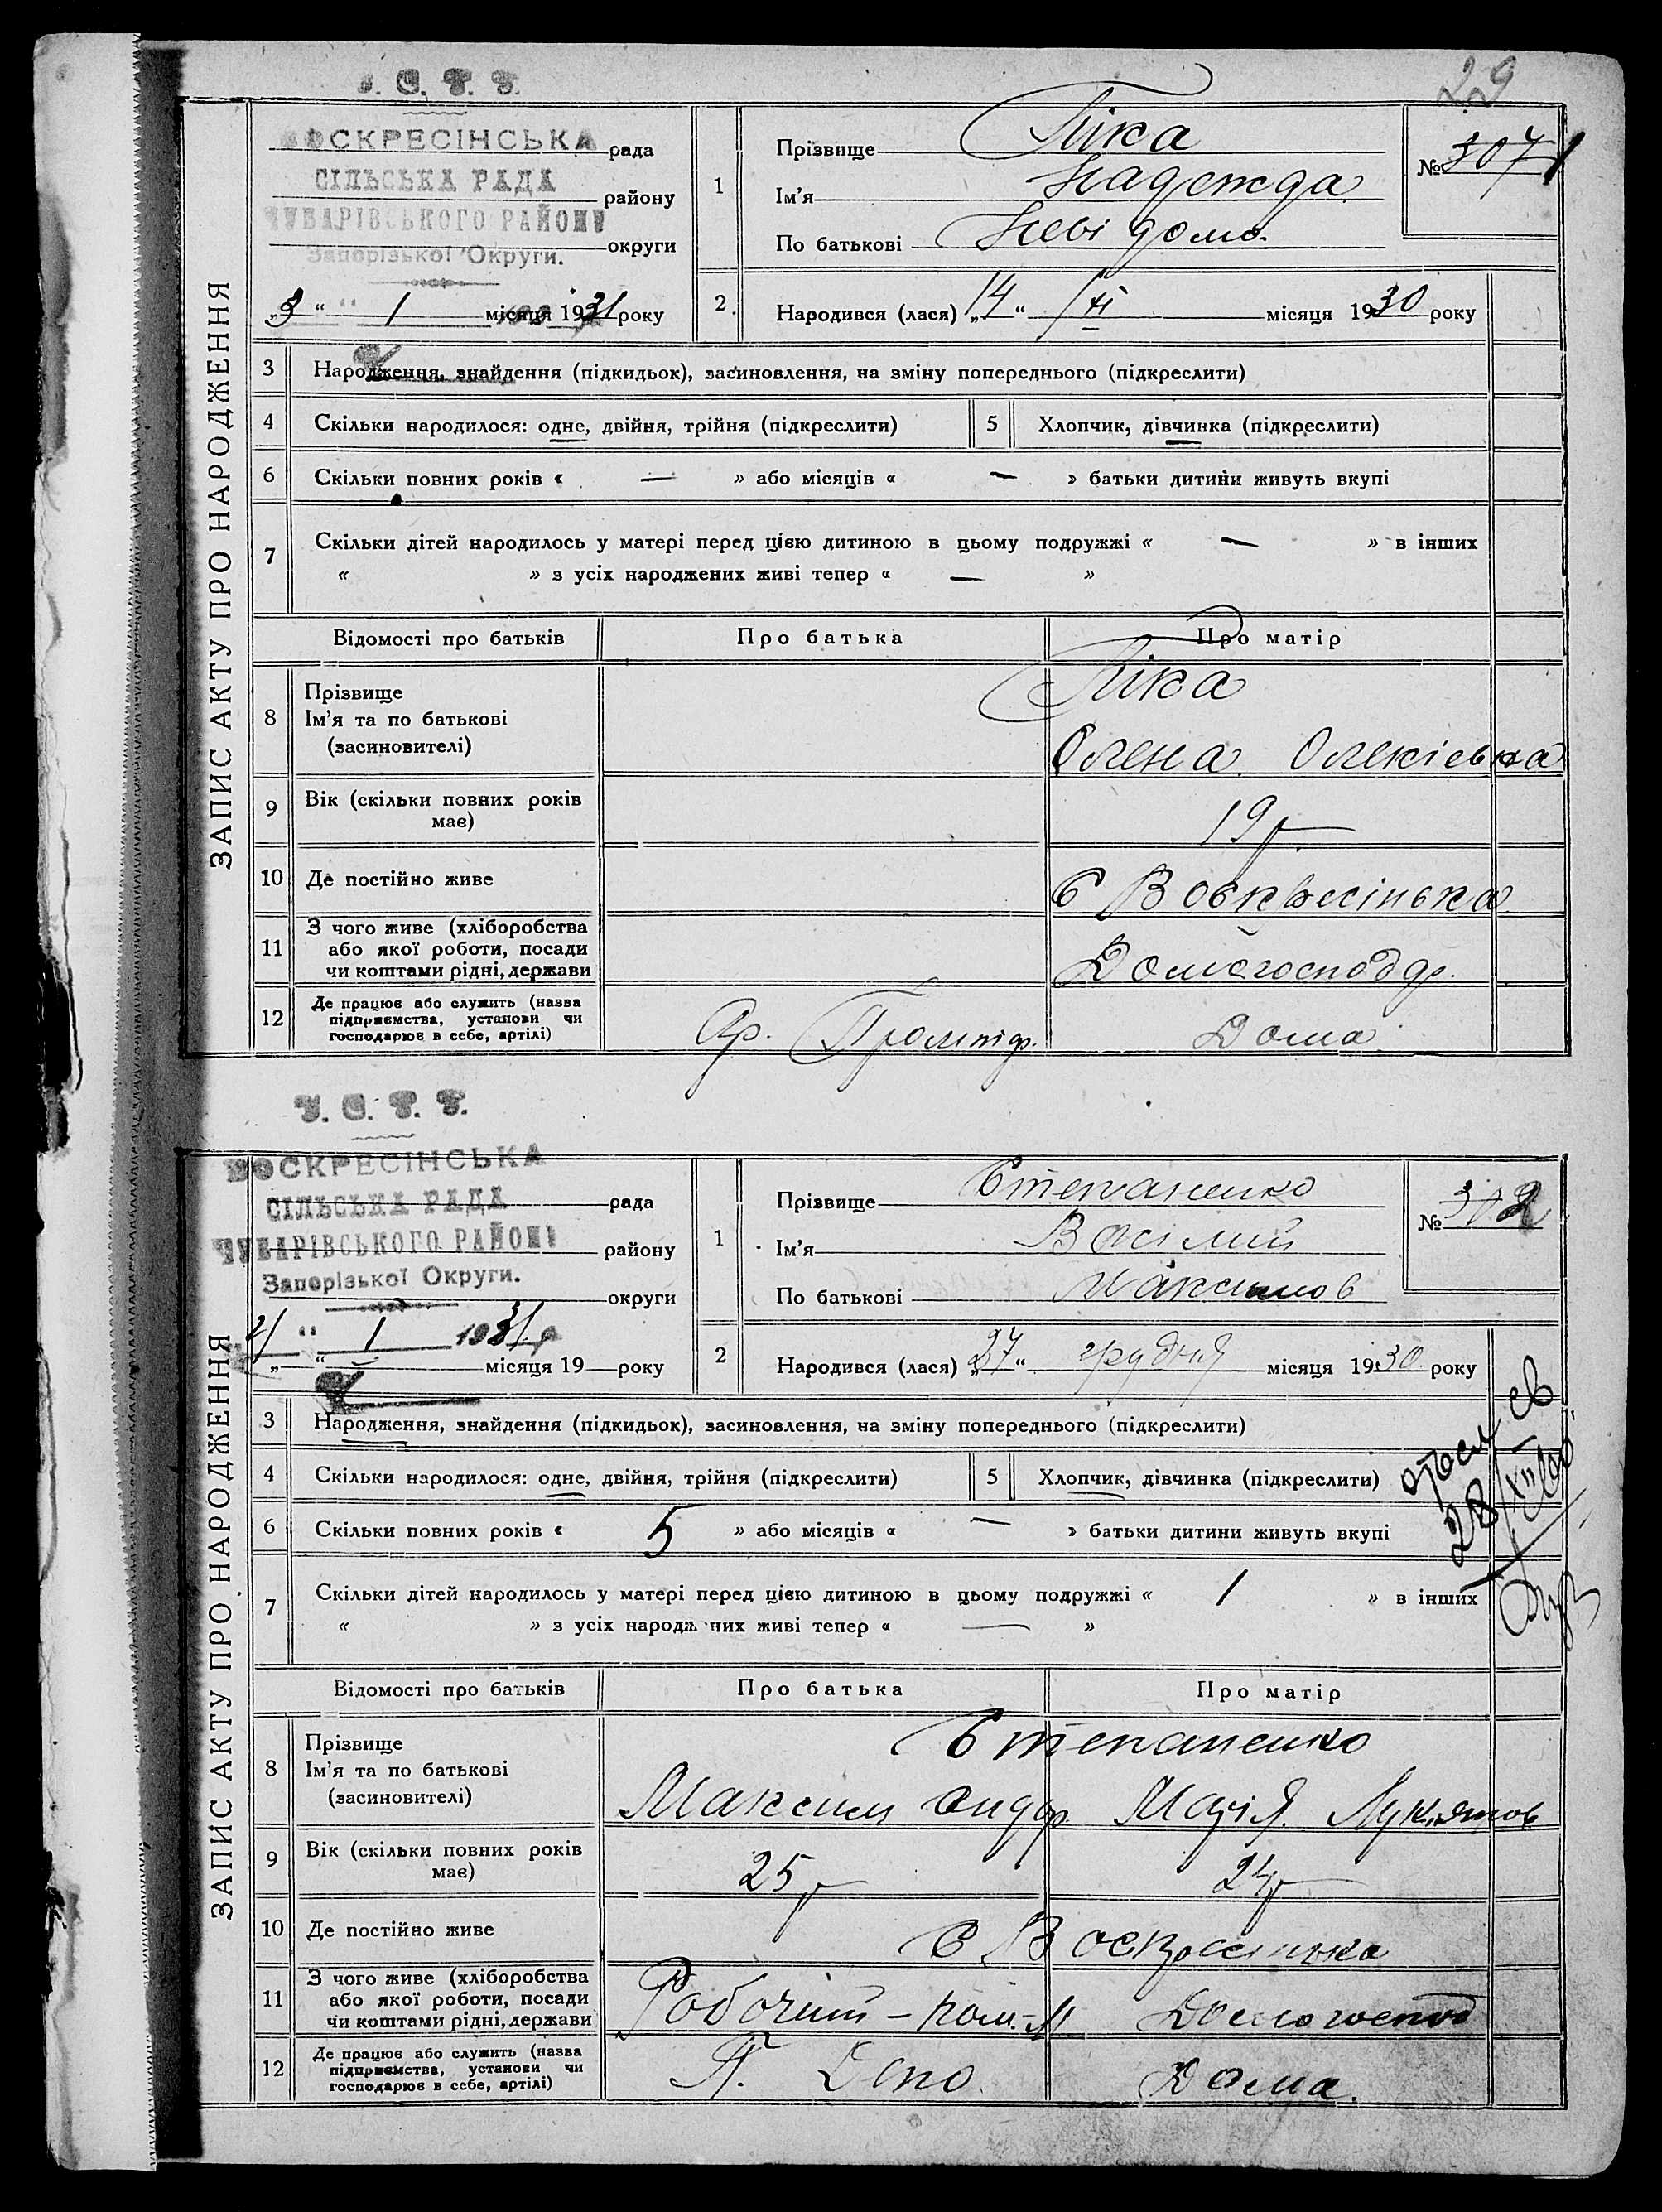 29
У. С. Р. Р.
ВОСКРЕСІНСЬКА рада
СІЛЬСЬКА РАДА
району
ЧУБАРІВСЬКОГО РАЙОНУ
Запорізької Округи. округи
„3“ 1 місяця 1931 року
ЗАПИС АКТУ ПРО НАРОДЖЕННЯ
1 Прізвище Піка
Ім'я Надежда
По батькові Невідомо.
№ 307 1
2. Народився (лася) „14“ місяця 1930 року
3 Народження, знайдення (підкидьок), засиновлення, на зміну попереднього (підкреслити)
4 Скільки народилося: одне, двійня, трійня (підкреслити) 5 Хлопчик, дівчинка (підкреслити)
6 Скільки повних років « — » або місяців « — » батьки дитини живуть вкупі
7 Скільки дітей народилось у матері перед цією дитиною в цьому подружжі « — » в інших
« » з усіх народжених живі тепер « — »
Відомості про батьків Про батька Про матір
8 Прізвище
Ім'я та по батькові
(засиновителі)
Піка
Олена Олексієвна
9 Вік (скільки повних років
має)
19 р
10 Де постійно живе С Воскресінька
11 З чого живе (хліборобства
або якої роботи, посади
чи коштами рідні, держави
Домогосподар.
12 Де працює або служить (назва
підприємства, установи чи
господарює в себе, артілі)
Дома.
У. С. Р. Р.
ВОСКРЕСІНСЬКА
СІЛЬСЬКА РАДА рада
ЧУБАРІВСЬКОГО РАЙОНУ району
Запорізької Округи.
округи
4 “ 1 1931 р
„ “ місяця 19 року
ЗАПИС АКТУ ПРО НАРОДЖЕННЯ
1 Прізвище Степаненко
Ім'я Василий
По батькові Максимов
№ 302
2 Народився (лася) „27“ грудня місяця 1930 року
3 Народження, знайдення (підкидьок), засиновлення, на зміну попереднього (підкреслити)
4 Скільки народилося: одне, двійня, трійня (підкреслити) 5 Хлопчик, дівчинка (підкреслити)
6 Скільки повних років « 5 » або місяців « — » батьки дитини живуть вкупі
7 Скільки дітей народилось у матері перед цією дитиною в цьому подружжі « 1 » в інших
« » з усіх народжених живі тепер « — »
Відомості про батьків Про батька Про матір
8 Прізвище
Ім'я та по батькові
(засиновителі)
Степаненко
Максим Андр. Марія Лук'янов
9 Вік (скільки повних років
має)
25 р 24 р
10 Де постійно живе С Воскресінька
11 З чого живе (хліборобства
або якої роботи, посади
чи коштами рідні, держави
Робочий – пом. М Домогоспод
12 Де працює або служить (назва
підприємства, установи чи
господарює в себе, артілі)
П. Депо. Дома.